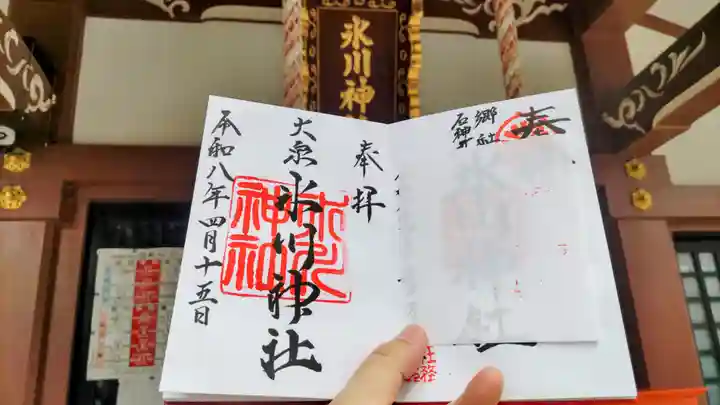 氷川神社
奉拝
大泉氷川神社
氷川神社
令和八年四月十五日
奉
郷社
石神井